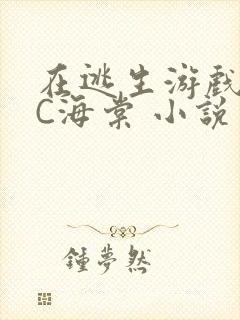 在逃生游戏
C海棠 小說
鍾夢然